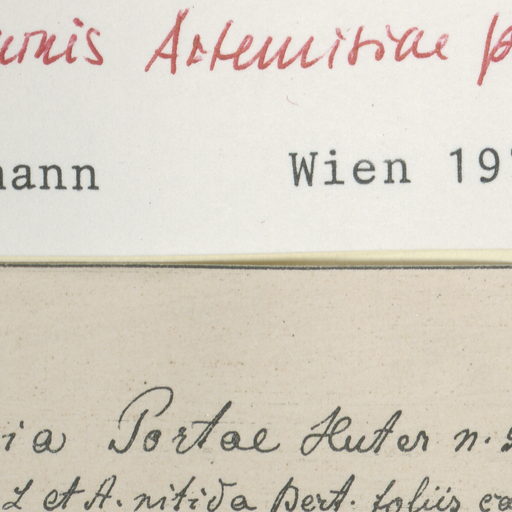 Artemisiae
mann Wien 19
ia Portae Huter n.
L et A. nitida Bert. foliis